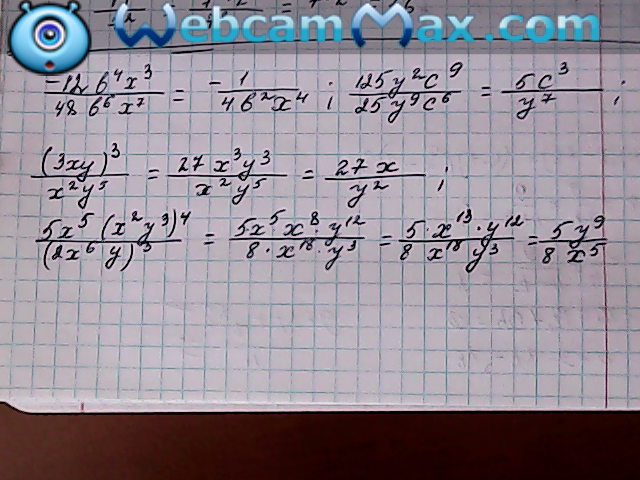 WebcamMax.com
-12 в⁴x³ / 48 в⁶x⁷ = -1 / 4в²x⁴ ; 125y²c⁹ / 25y⁹c⁶ = 5c³ / y⁷ ;
(3xy)³ / x²y⁵ = 27x³y³ / x²y⁵ = 27x / y² ;
5x⁵(x²y³)⁴ / (2x⁶y)³ = 5x⁵x⁸·y¹² / 8·x¹⁸·y³ = 5·x¹³·y¹² / 8 x¹⁸ y³ = 5y⁹ / 8 x⁵